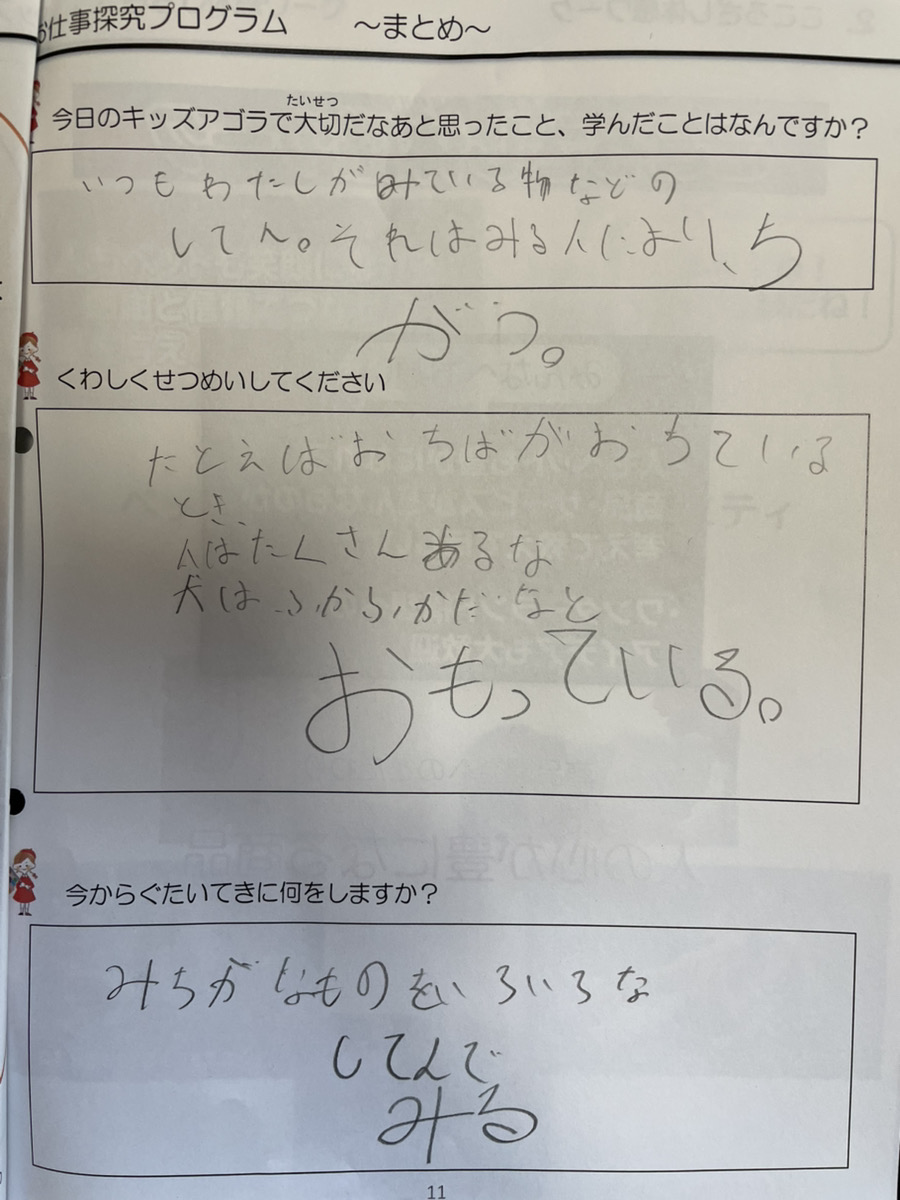 お仕事探究プログラム　～まとめ～
たいせつ
今日のキッズアゴラで大切だなあと思ったこと、学んだことはなんですか？
いつもわたしがみている物などの
してん。それはみる人により、ち
がう。
くわしくせつめいしてください
たとえばおちばがおちている
とき、
人はたくさんあるな
犬はふかふかだなと
おもっている。
今からぐたいてきに何をしますか？
みちがなものをいろいろな
してんで
みる
11